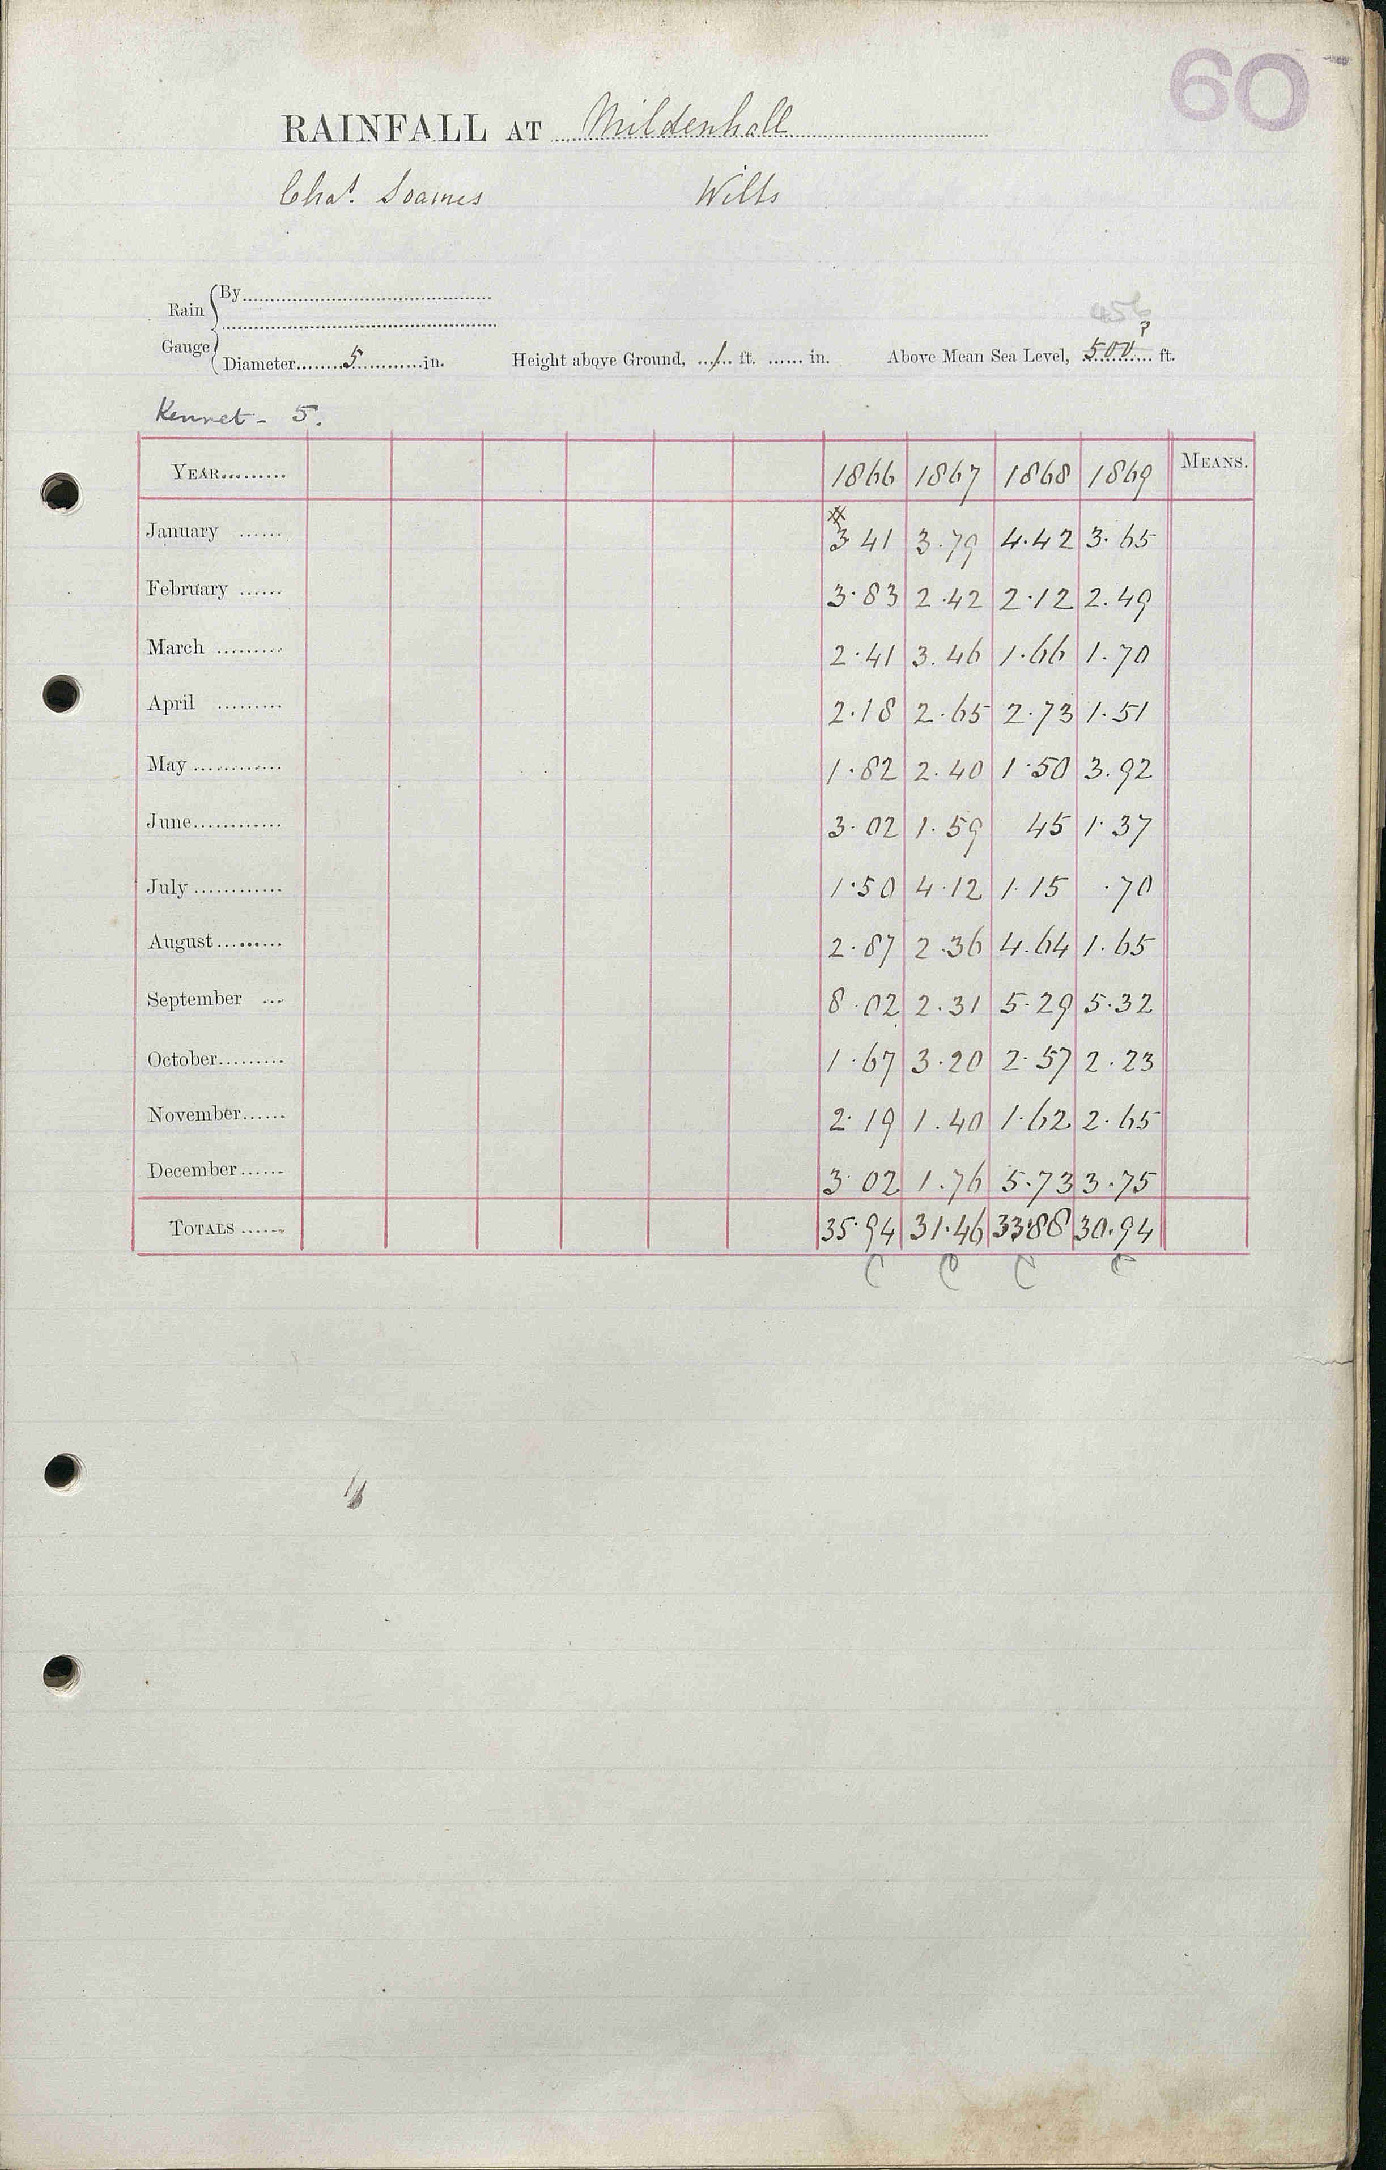 60
RAINFALL AT Mildenhall
Chas. Soames Wilts
456
Rain Gauge { By
?
Diameter 5 in. Height above Ground, 1 ft. in. Above Mean Sea Level, 500 ft.
Kennet - 5.
YEAR 1866 1867 1868 1869 MEANS.
January 3 41 3.79 4.42 3.65
February 3.83 2.42 2.12 2.49
March 2.41 3.46 1.66 1.70
April 2.18 2.65 2.73 1.51
May 1.82 2.40 1.50 3.92
June 3.02 1.59 45 1.37
July 1.50 4.12 1.15 .70
August 2.87 2.36 4.64 1.65
September 8.02 2.31 5.29 5.32
October 1.67 3.20 2.57 2.23
November 2.19 1.40 1.62 2.65
December 3 02 1.76 5.73 3.75
TOTALS 35.94 31.46 33.88 30.94
C C C C